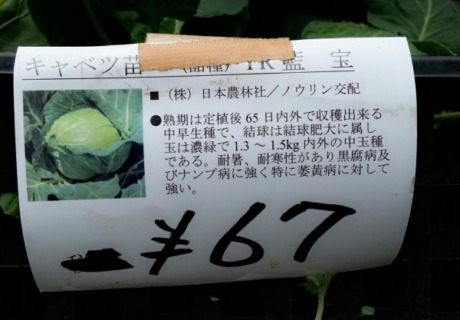 キャベツ苗 (品種) YR藍 宝
■ (株) 日本農林社/ノウリン交配
●熟期は定植後 65 日内外で収穫出来る
中早生種で、結球は結球肥大に属し
玉は濃緑で 1.3 ~ 1.5kg 内外の中玉種
である。耐暑、耐寒性があり黒腐病及
びナンプ病に強く特に萎黄病に対して
強い。
¥67